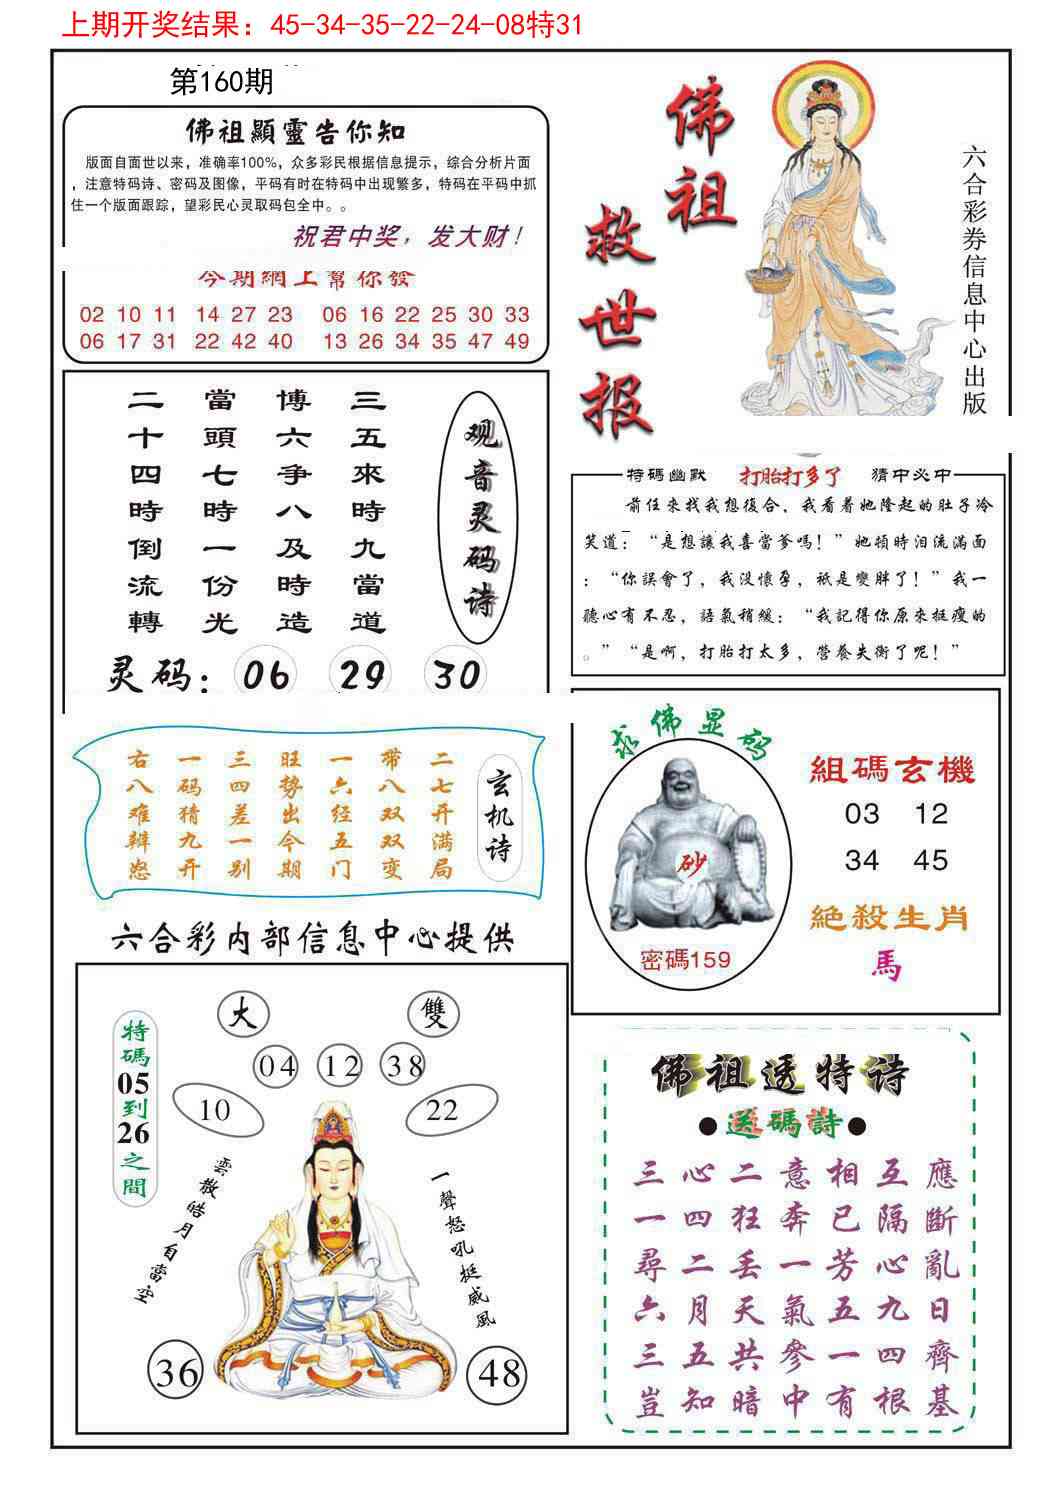 上期开奖结果：45-34-35-22-24-08特31
第160期
佛祖顯靈告你知
版面自面世以来，准确率100%，众多彩民根据信息提示，综合分析片面
，注意特码诗、密码及图像，平码有时在特码中出现繁多，特码在平码中抓
住一个版面跟踪，望彩民心灵取码包全中。。
祝君中奖，发大财！
今期網上幫你發
02 10 11 14 27 23 06 16 22 25 30 33
06 17 31 22 42 40 13 26 34 35 47 49
佛祖
救世报
六合彩券信息中心出版
观音灵码诗
三五來時九當道
博六争八及時造
當頭七時一份光
二十四時倒流轉
灵码：06 29 30
特碼幽默 打胎打多了 猜中必中
前任來找我想復合，我看着她隆起的肚子冷
笑道：“是想讓我喜當爹嗎！”她頓時泪流滿面
：“你誤會了，我没懷孕，祇是變胖了！”我一
聽心有不忍，語氣稍緩：“我記得你原來挺瘦的
。”“是啊，打胎打太多，營養失衡了呢！”
玄机诗
二七开满局
带八双双变
一六经五门
旺势出今期
三四差一别
一码猜九开
右八难辨愁
求佛显码
砂
密碼159
組碼玄機
03 12
34 45
絶殺生肖
馬
六合彩内部信息中心提供
大 雙
04 12 38
10 22
特碼05到26之間
雲散皓月自當空
一聲怒吼挺威風
36 48
佛祖透特诗
●送碼詩●
三心二意相互應
一四狂奔已隔斷
尋二丢一芳心亂
六月天氣五九日
三五共參一四齊
豈知暗中有根基